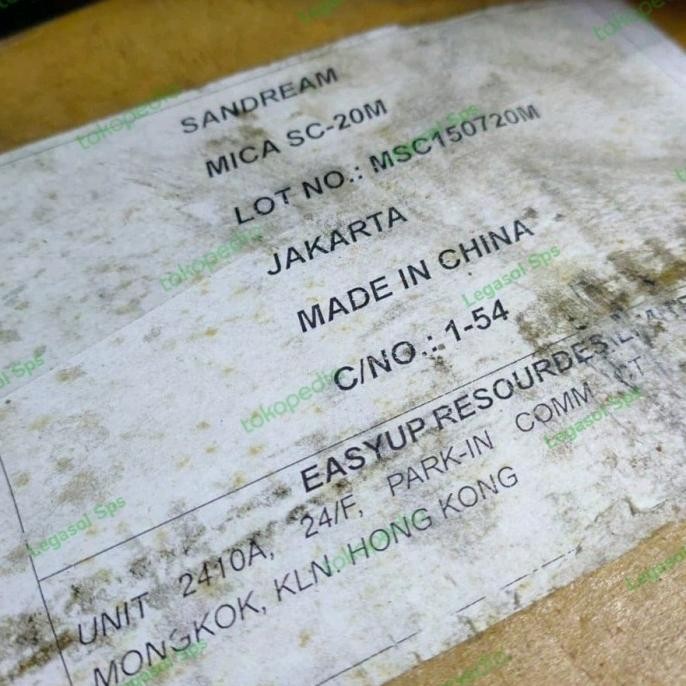 SANDREAM
MICA SC-20M
LOT NO.: MSC150720M
JAKARTA
MADE IN CHINA
C/NO.: 1-54
EASYUP RESOURDES
UNIT 2410A, 24/F, PARK-IN COMM
MONGKOK, KLN. HONG KONG
tokopedia
Legasol Sps